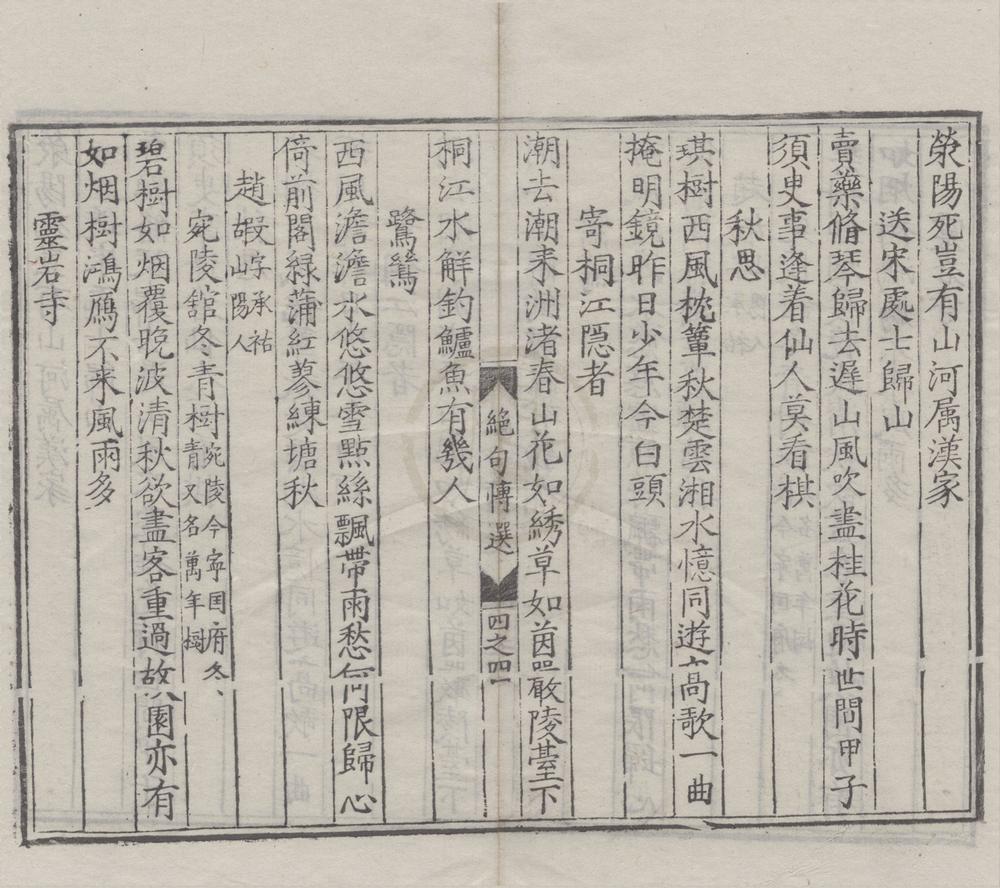 滎陽死豈有山河属漢家
送宋處士歸山
賣藥脩琴歸去遲山風吹盡桂花時世間甲子
須臾事逢着仙人莫看棋
秋思
琪樹西風枕簟秋楚雲湘水憶同遊高歌一曲
掩明鏡昨日少年今白頭
寄桐江隠者
潮去潮来洲渚春山花如綉草如茵嚴陵臺下
桐江水解釣鱸魚有幾人
絶句博選
四之四
鷺鷥
西風澹澹水悠悠雪點絲飄帶雨愁何限歸心
倚前閣緑蒲紅蓼練塘秋
趙嘏字承祐山陽人
宛陵舘冬青樹宛陵今寜国府冬青又名萬年樹
碧樹如烟覆晚波清秋欲盡客重過故園亦有
如烟樹鴻鴈不来風雨多
靈岩寺